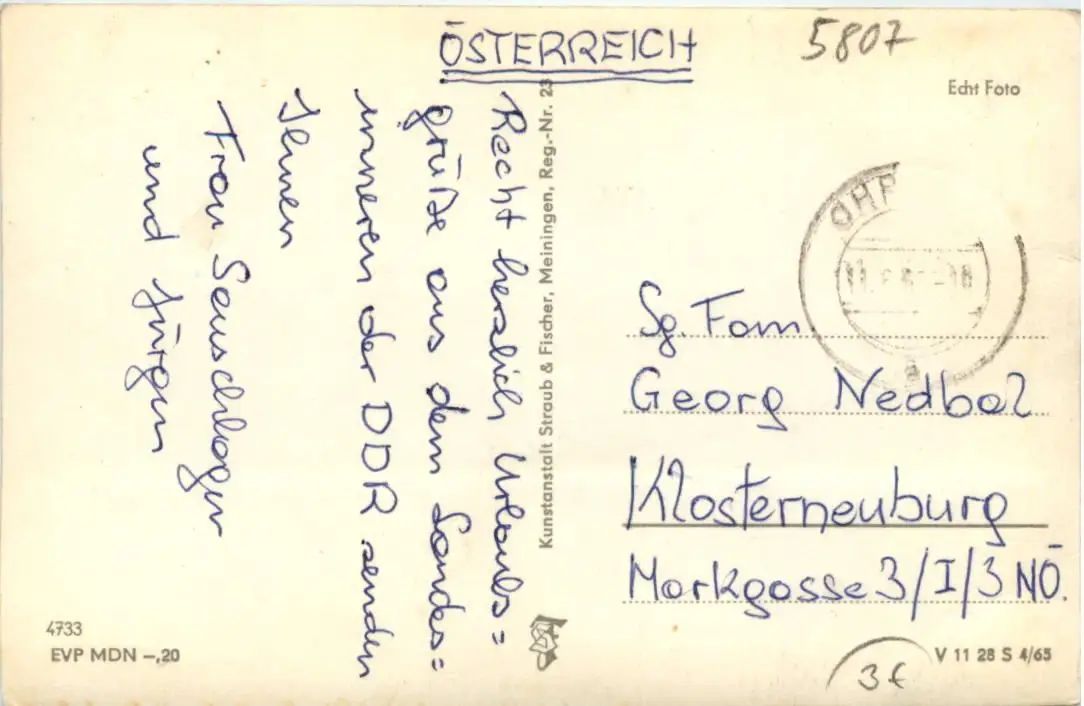 ÖSTERREICH
5807
Echt Foto
Recht herzlich Urlaubs=
grüße aus dem Landes=
inneren der DDR senden
Ihnen
Frau
und Jürgen
Kunstanstalt Straub & Fischer, Meiningen, Reg.-Nr. 23
OHR
Sg. Fam.
Georg Nedbal
Klosterneuburg
Markgasse 3/I/3 NÖ.
4733
EVP MDN –,20
V 11 28 S 4/65
3€